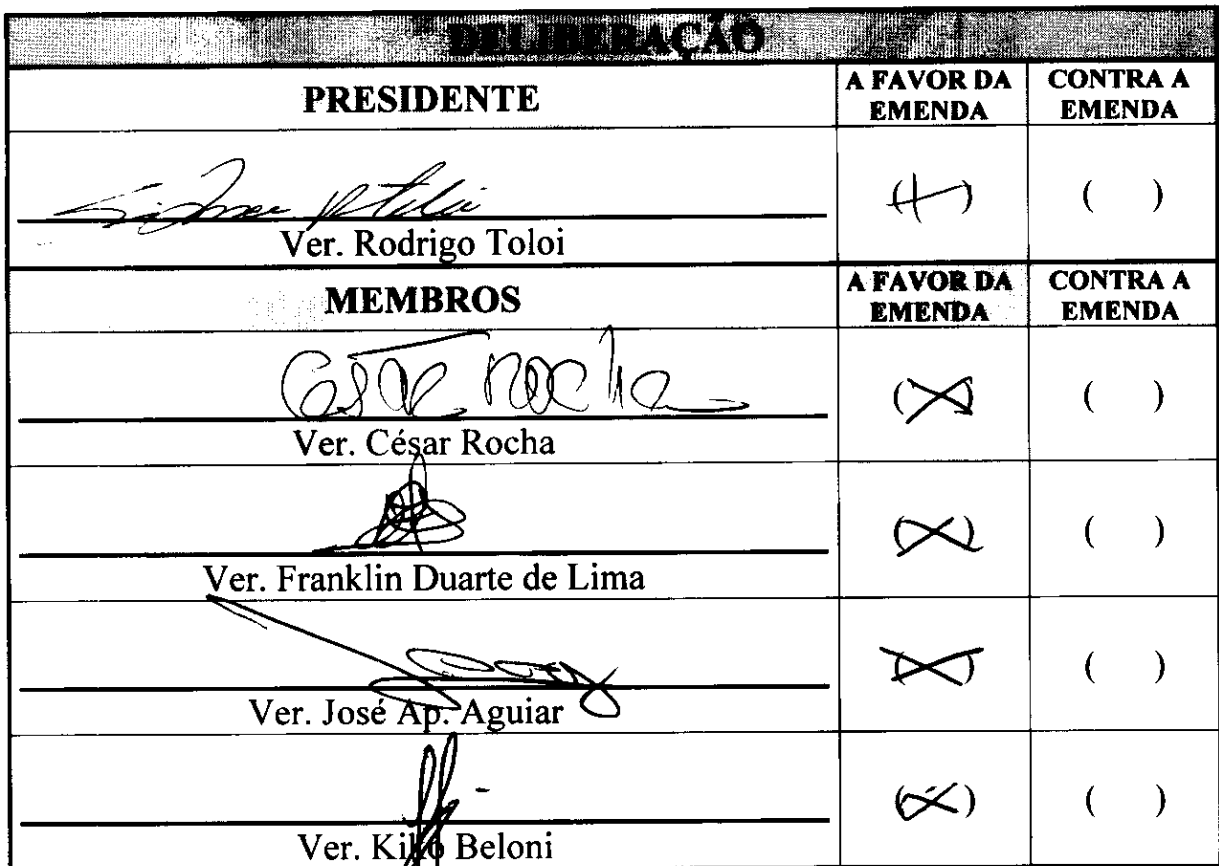 DELIBERAÇÃO
PRESIDENTE
A FAVOR DA EMENDA
CONTRA A EMENDA
(+) ( )
Ver. Rodrigo Toloi
MEMBROS
A FAVOR DA EMENDA
CONTRA A EMENDA
César Rocha
(X) ( )
Ver. César Rocha
(X) ( )
Ver. Franklin Duarte de Lima
(X) ( )
Ver. José Ap. Aguiar
(X) ( )
Ver. Kiko Beloni